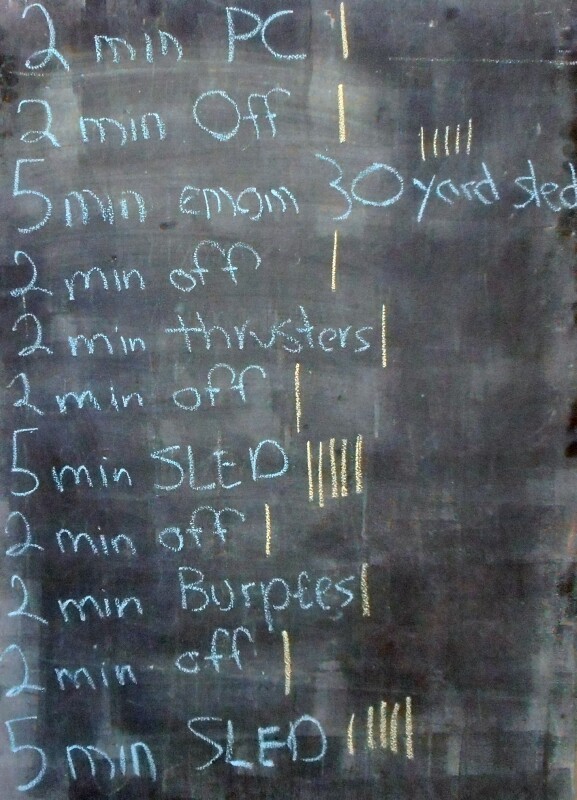 2 min PC |
2 min Off |
|||||
5 min emom 30 yard sled
2 min off |
2 min thrusters |
2 min off |
5 min SLED |||||
2 min off |
2 min Burpees |
2 min off |
5 min SLED |||||